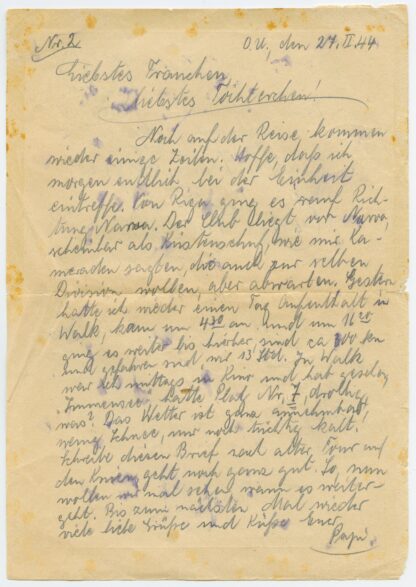 Nr. 2.
O.U., den 27.II.44
Liebstes Frauchen,
liebstes Töchterchen!
Noch auf der Reise, kommen
wieder einige Zeilen. Hoffe, daß ich
morgen endlich bei der Einheit
eintreffe. Von Riga ging es rauf Rich-
tung Narwa. Der Club liegt vor Narwa,
scheinbar als Küstenschutz, wie mir Ka-
meraden sagten, die auch zur selben
Division wollen, aber abwarten. Gestern
hatte ich wieder einen Tag Aufenthalt in
Walk, kam um 4 30 an und um 16
ging es weiter bis hierher, sind ca 300 km
und gefahren sind wir 13 Std. In Walk
war ich mittags im Kino und hab gesehen
"Immensee", hatte Platz Nr. 7, drollig,
was? Das Wetter ist ganz annehmbar,
wenig Schnee, nur noch tüchtig kalt.
Schreibe diesen Brief nach alter Tour auf
den Knien, geht noch ganz gut. So, nun
wollen wir mal sehen wann es weiter-
geht. Bis zum nächsten Mal wieder
viele liebe Grüße und Küsse Euer
Papi